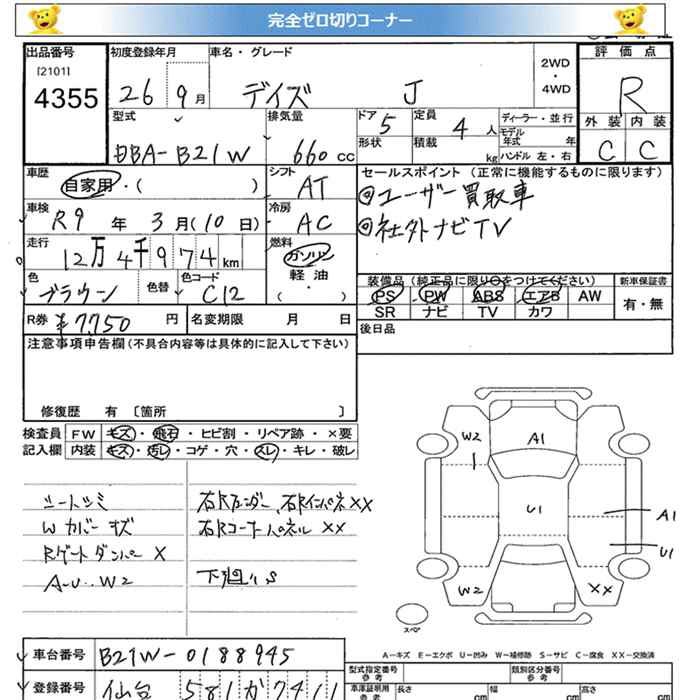 完全ゼロ切りコーナー
出品番号 初度登録年月 車名・グレード 2WD・4WD 評価点
[2101]
4355 26 9月 デイズ J R
型式 排気量 ドア 定員 ディーラー・並行 外装 内装
DBA-B21W 660cc 5 4人 モデル年式 年
形状 積載 kg ハンドル 左・右 C C
車歴 自家用・( ) シフト AT セールスポイント (正常に機能するものに限ります)
◎ユーザー買取車
車検 R9年 3月(10日) 冷房 AC
◎社外ナビTV
走行 12万4千974km 燃料 ガソリン 軽油 ( ・ )
色 ブラウン 色替 色コード C12
装備品 (純正品に限り○をつけてください) 新車保証書
PS PW ABS エアB AW 有・無
SR ナビ TV カワ
R券 ¥7,750円 名変期限 月 日 後日品
注意事項申告欄(不具合内容等は具体的に記入して下さい)
修復歴 有 〔箇所 〕
検査員 FW キズ・飛石・ヒビ割・リペア跡・×要
記入欄 内装 キズ・汚レ・コゲ・穴・スレ・キレ・破レ
シートシミ 右Rフェンダー、右Rインパネ××
Wカバーキズ 右Rコーナーパネル××
Rゲートダンパー×
A-U..W2 下廻りS
W2 A1
U1
A1
U1
W2 ××
スペア
A-キズ E-エクボ U-凹み W-補修跡 S-サビ C-腐食 XX-交換済
車台番号 B21W-0188945 型式指定番号 参考 類別区分番号 参考
登録番号 仙台 581か7411 車庫証明用 参考 長さ cm 幅 cm 高さ cm